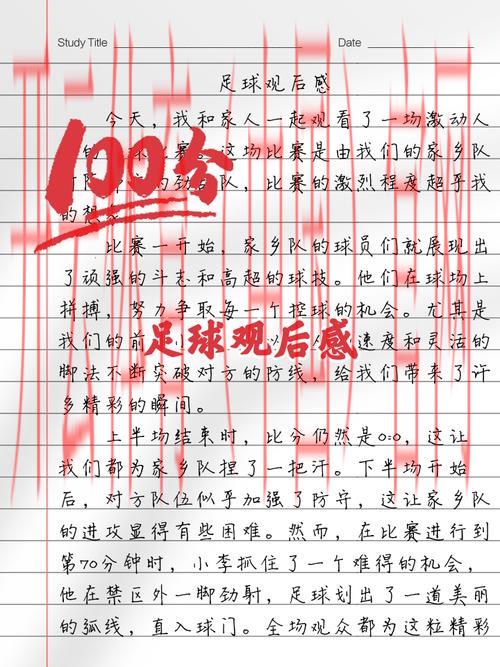 Study Title Date
足球观后感
今天，我和家人一起观看了一场激动人
的 比赛。这场比赛是由我们的家乡队
100分
队，比赛的激烈程度超乎我
的想
比赛一开始，家乡队的球员们就展现出
了顽强的斗志和高超的球技。他们在球场上
拼搏，努力争取每一个控球的机会。尤其是
我们的前 速度和灵活的
足球观后感
脚法不断突破对方的防线，给我们带来了许
多精彩的瞬间。
上半场结束时，比分仍然是0:0，这让
我们都为家乡队捏了一把汗。下半场开始
后，对方队伍似乎加强了防守，这让家乡队
的进攻显得有些困难。然而，在比赛进行到
第70分钟时，小李抓住了一个难得的机会，
他在禁区外一脚劲射，足球划出了一道美丽
的弧线，直入球门。全场观众都为这粒精彩